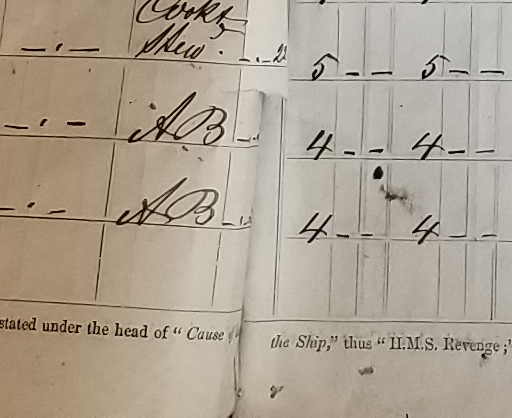 Cook &
Stew. 5 - - 5 - -
- . - AB 4 - - 4 - -
- . - AB 4 - - 4 - -
stated under the head of "Cause
the Ship," thus "H.M.S. Revenge;"